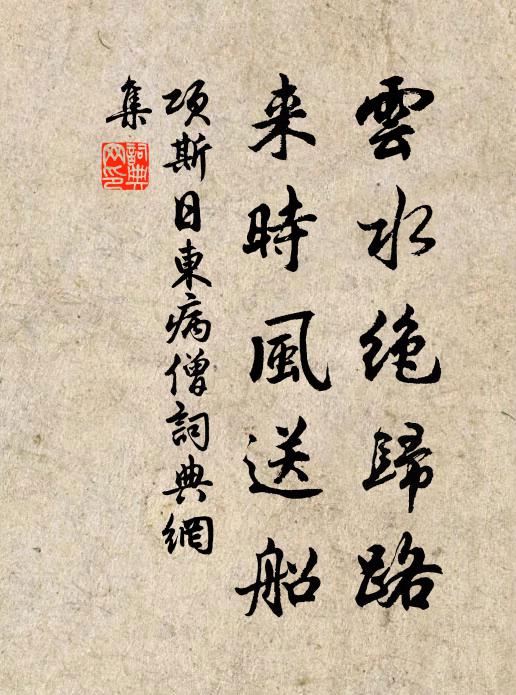 雲水絶歸路
来時風送船
項斯日東病僧詞典網
集
詞典
网印